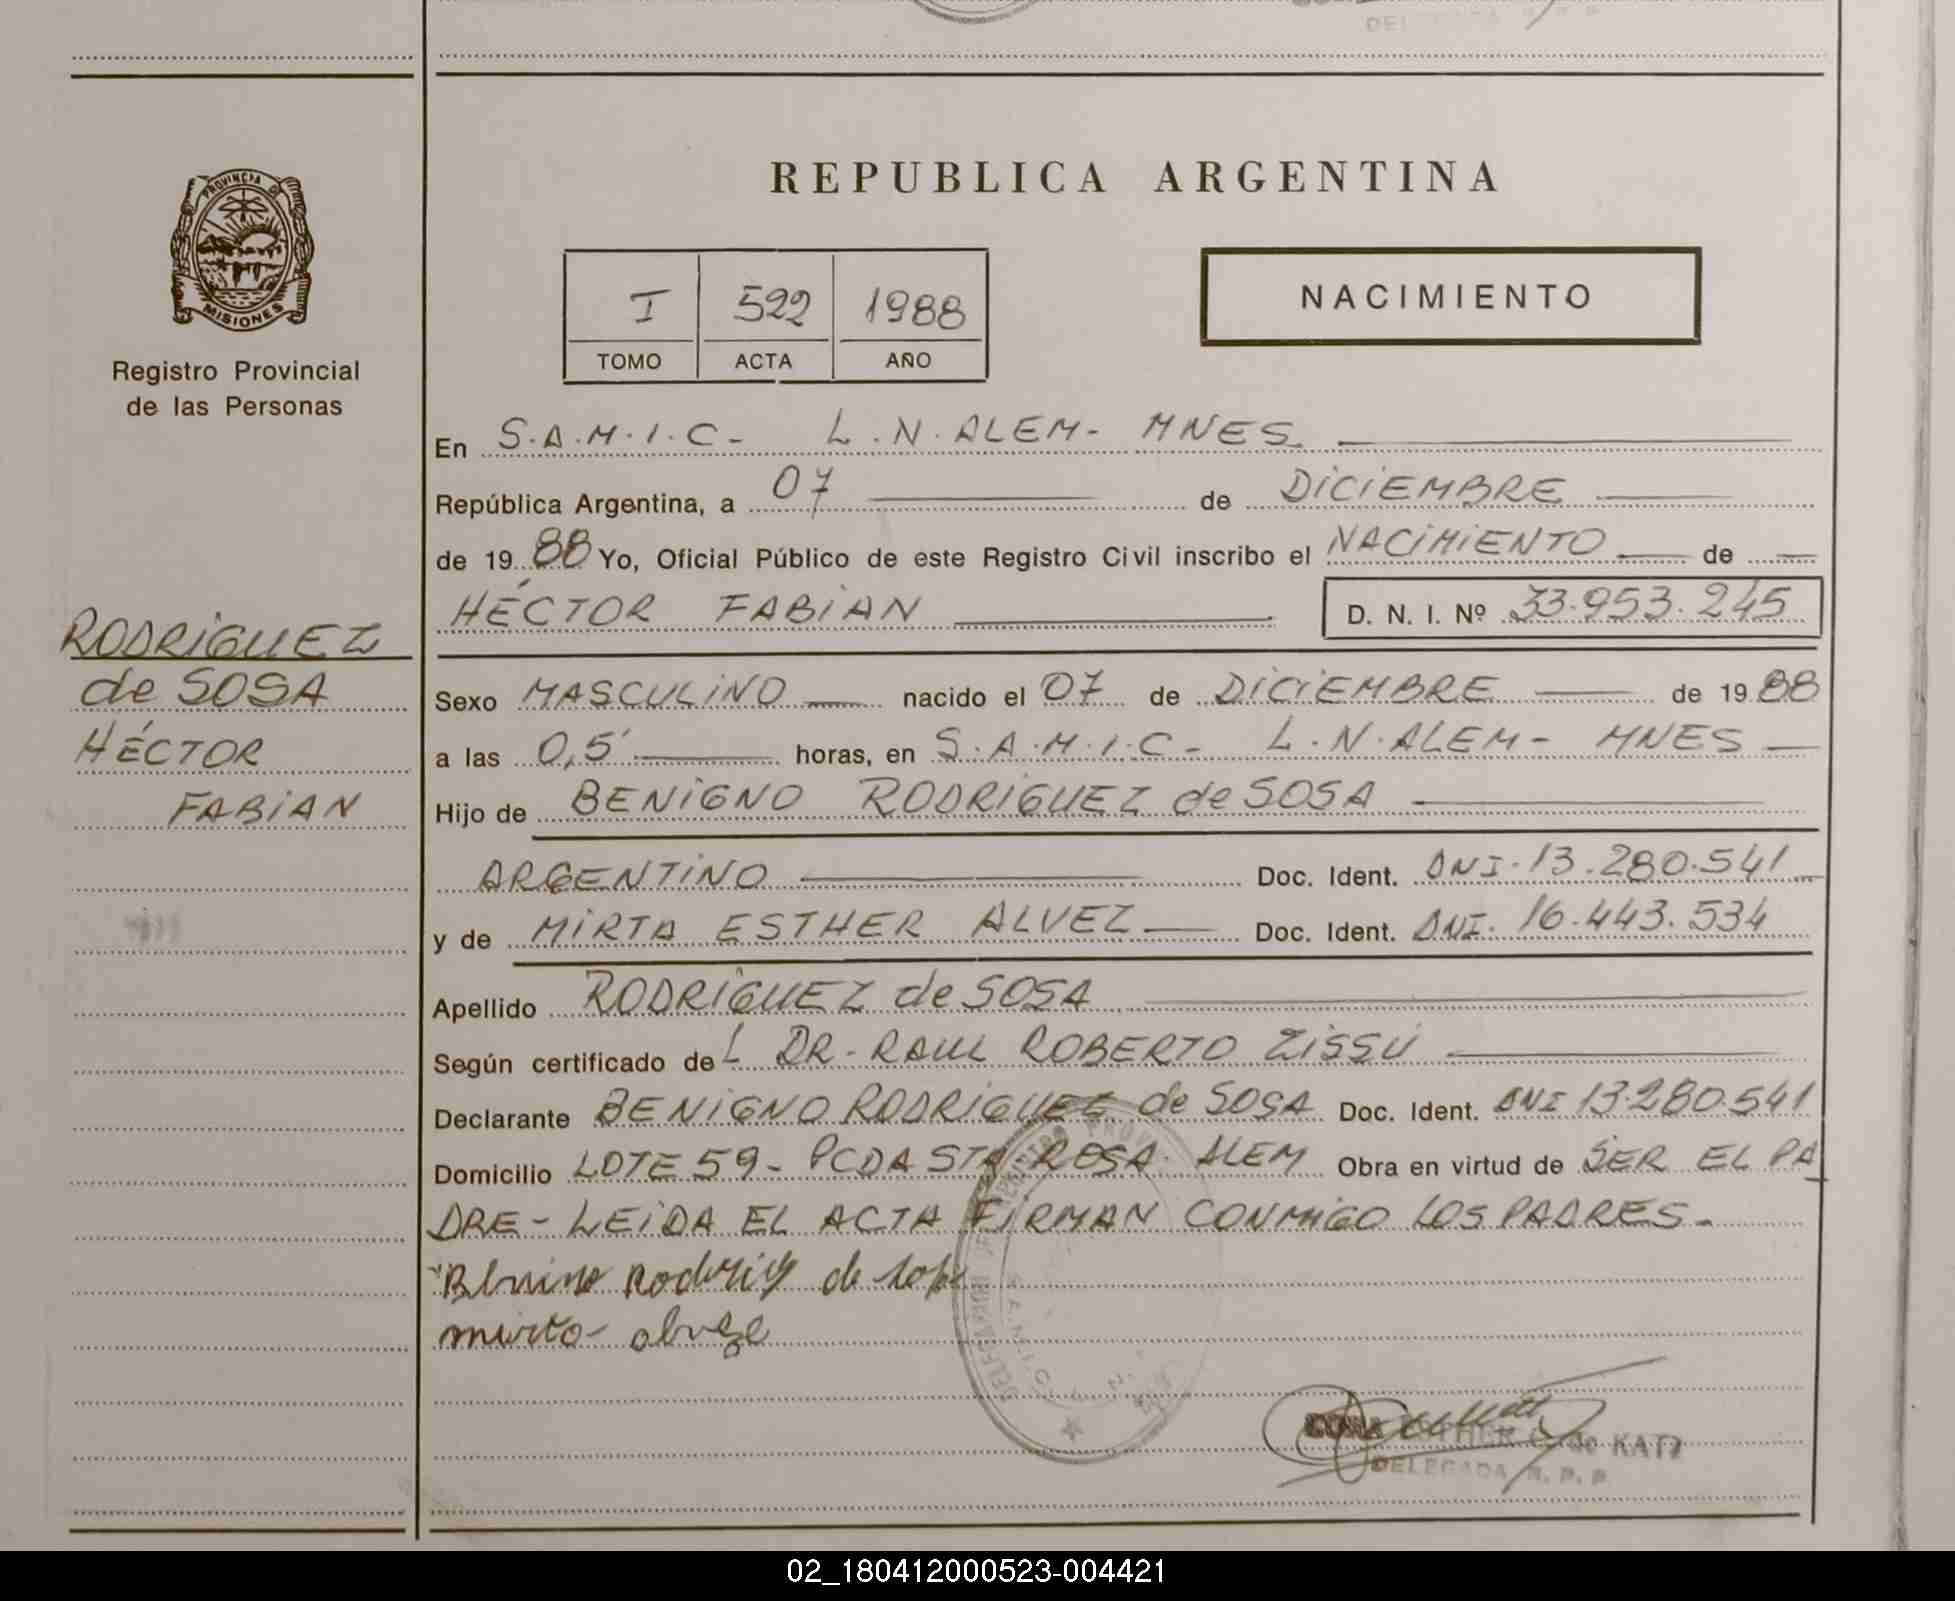 REPUBLICA ARGENTINA
PROVINCIA D
MISIONES
Registro Provincial
de las Personas
I 522 1988
TOMO ACTA AÑO
NACIMIENTO
En S.A.M.I.C- L.N.ALEM- MNES.
República Argentina, a 07 de DICIEMBRE
de 19 88 Yo, Oficial Público de este Registro Civil inscribo el NACIMIENTO de
HÉCTOR FABIAN D. N. I. Nº 33.953.245
RODRIGUEZ
de SOSA
HÉCTOR
FABIAN
Sexo MASCULINO nacido el 07 de DICIEMBRE de 19 88
a las 0,5' horas, en S.A.M.I.C- L.N.ALEM- MNES
Hijo de BENIGNO RODRIGUEZ de SOSA
ARGENTINO Doc. Ident. DNI.13.280.541
y de MIRTA ESTHER ALVEZ Doc. Ident. DNI. 16.443.534
Apellido RODRIGUEZ de SOSA
Según certificado de L DR. RAUL ROBERTO ZISSU
Declarante BENIGNO RODRIGUEZ de SOSA Doc. Ident. DNI 13.280.541
Domicilio LOTE 59- PCDA STA. ROSA. ALEM Obra en virtud de SER EL PA
DRE- LEIDA EL ACTA FIRMAN CONMIGO LOS PADRES.
de
KATZ
DELEGADA R. P. P
02_180412000523-004421